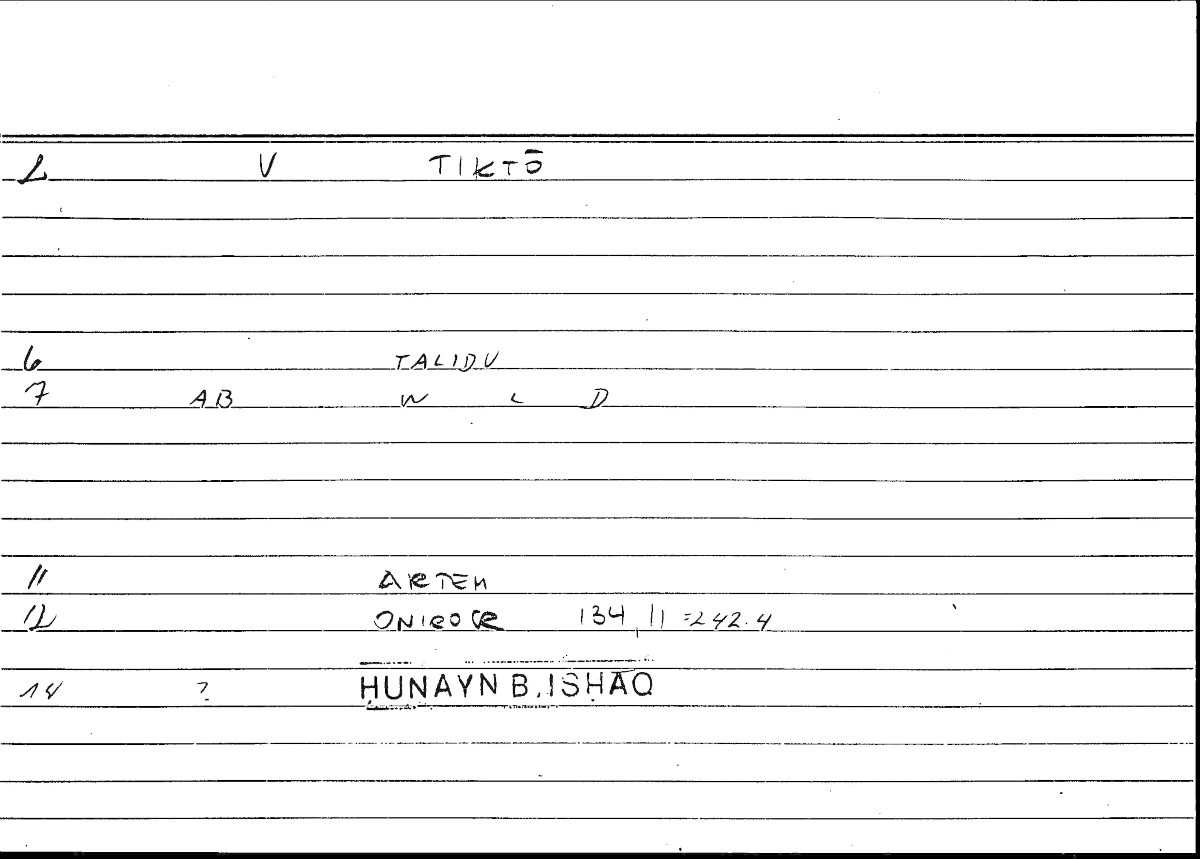 2 V TIKTŌ
6 TALIDU
7 AB W L D
11 ARTEM
12 ONIROCR 134,11 =242.4
14 ? HUNAYN B.ISḤĀQ